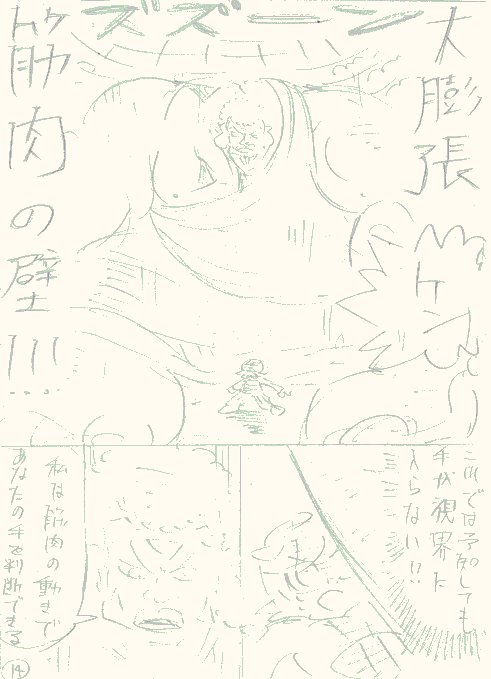 ズズーン
大膨張
筋肉の壁!!!
これでは予知しても
手が視界に
入らない!!
私は筋肉の動きで
あなたの手を判断できる
14